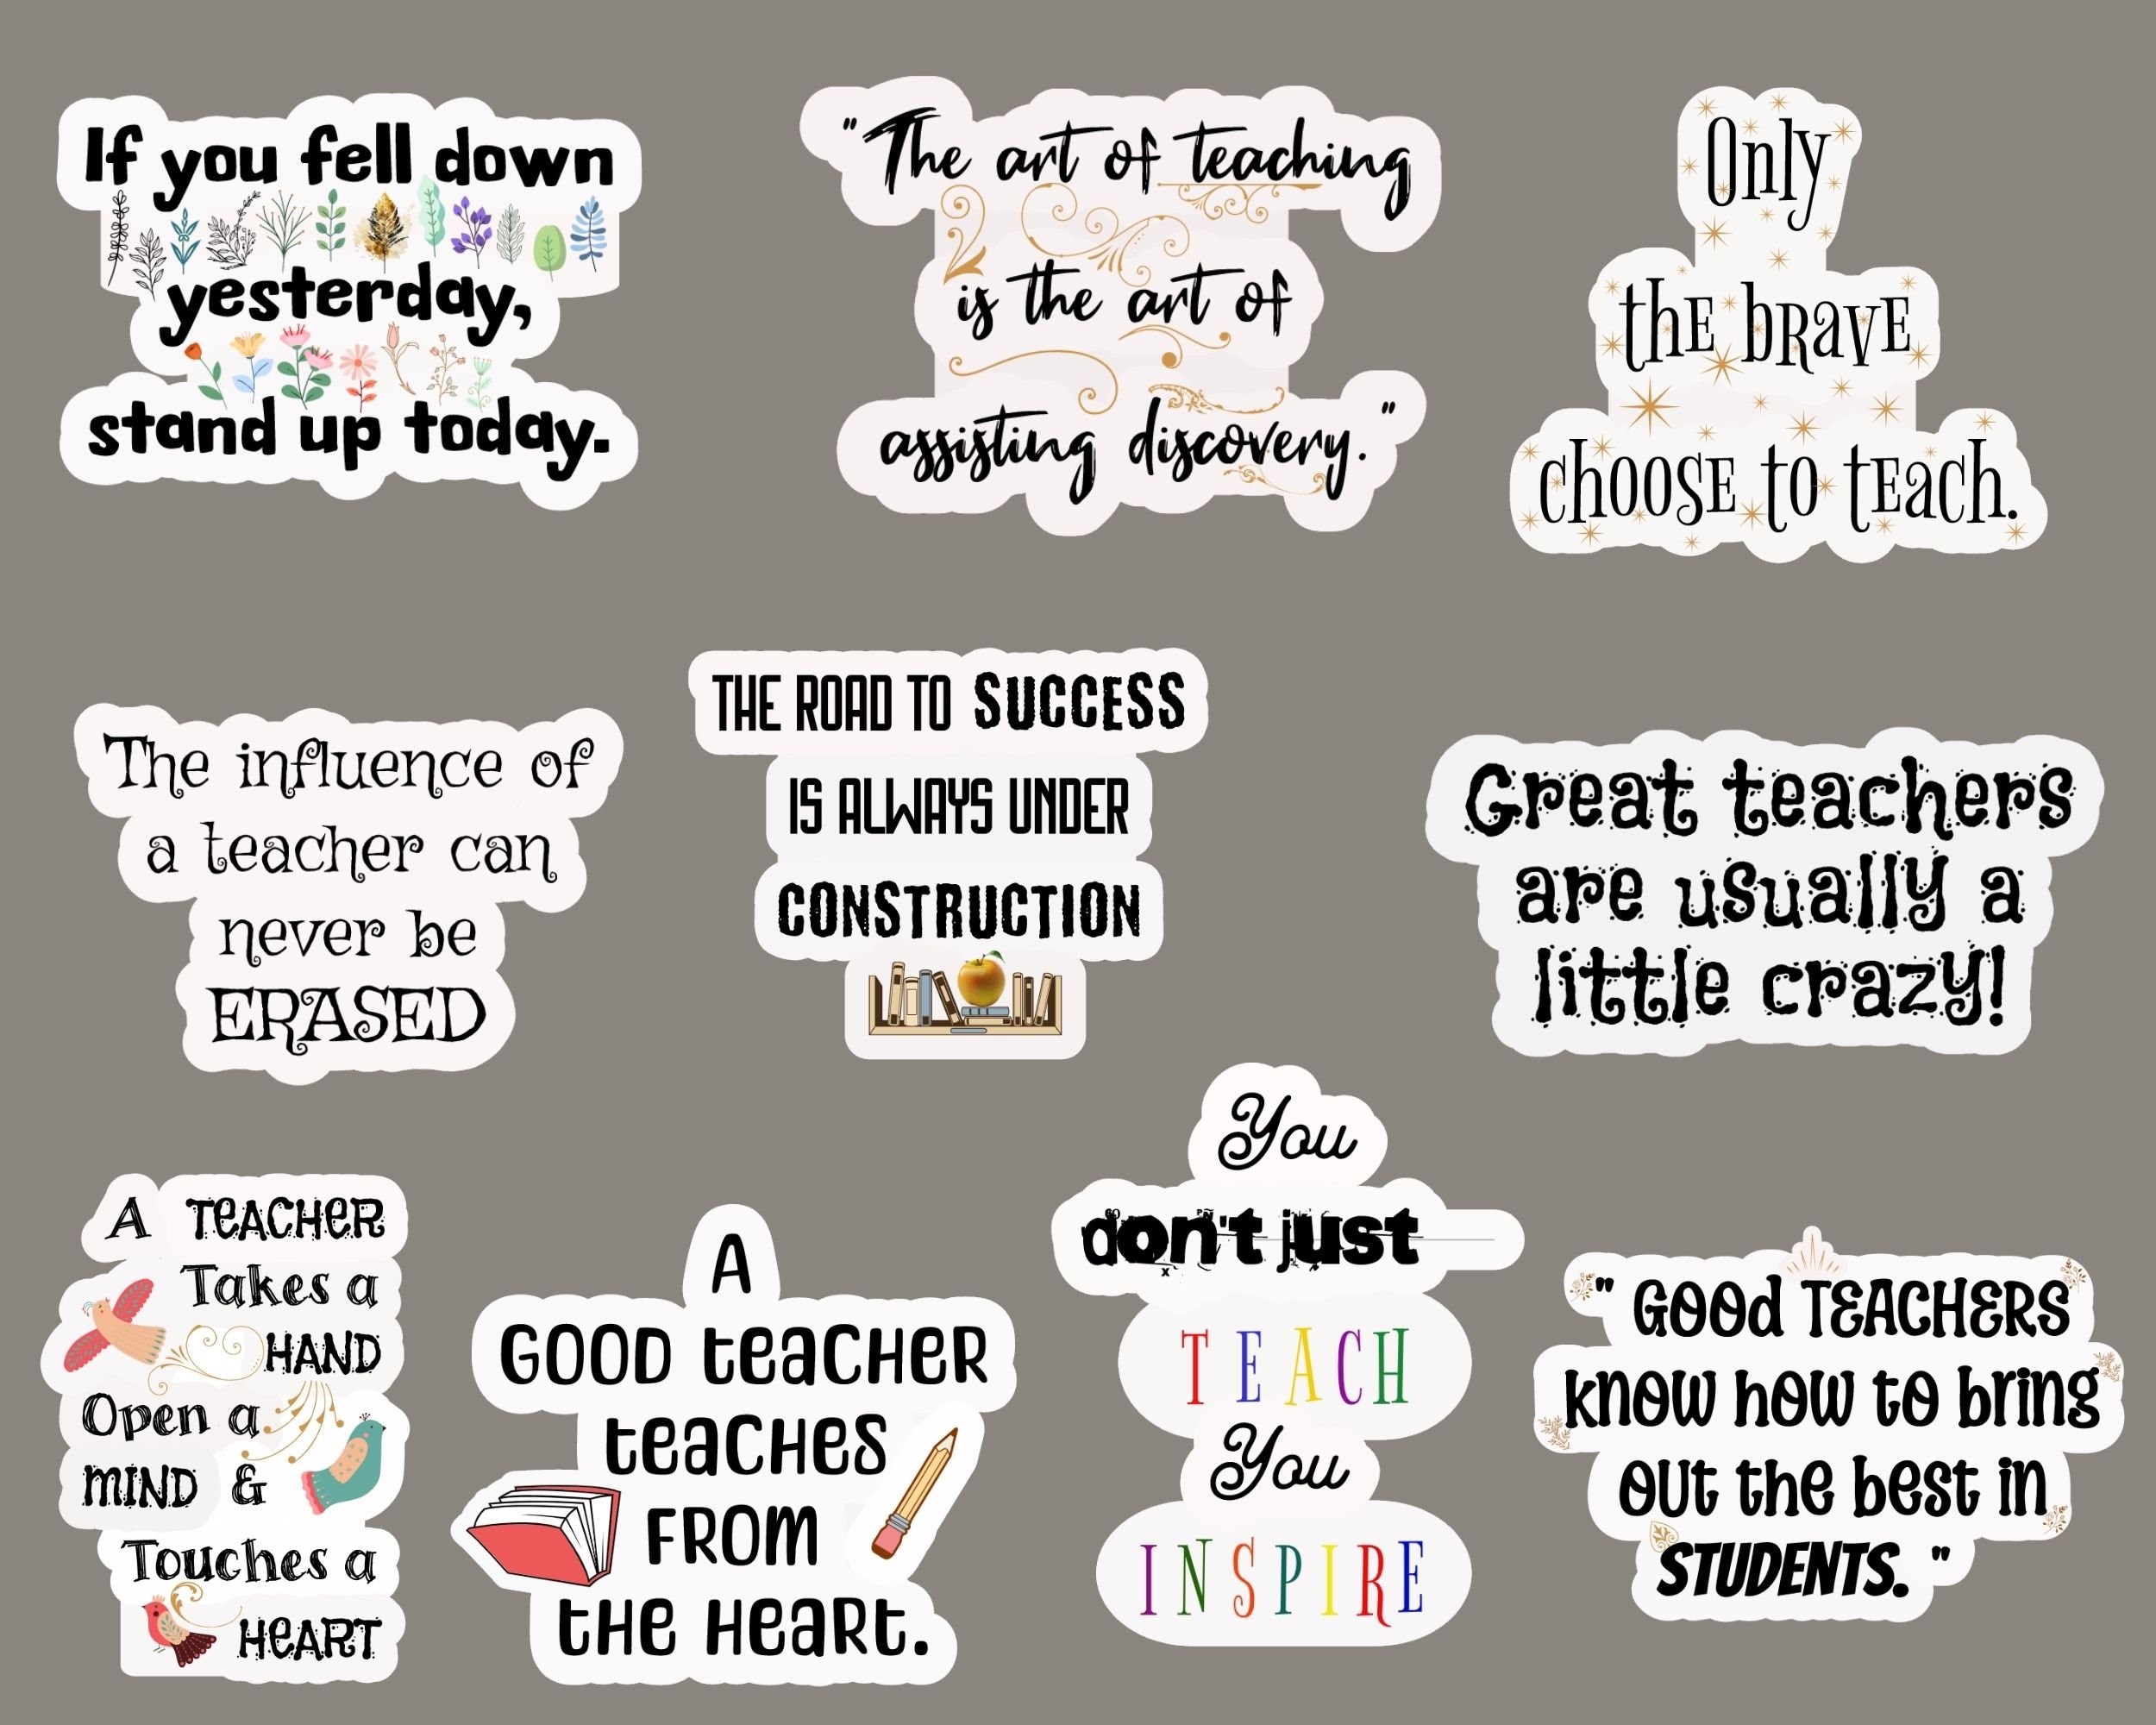 If you fell down
yesterday,
stand up today.
"The art of teaching
is the art of
assisting discovery."
Only
the brave
choose to teach.
The influence of
a teacher can
never be
ERASED
THE ROAD TO SUCCESS
IS ALWAYS UNDER
CONSTRUCTION
Great teachers
are usually a
little crazy!
A TEACHER
Takes a
HAND
Open a
MIND &
Touches a
HEART
A
GOOD teacher
teaches
FROM
the Heart.
You
don't just
TEACH
You
INSPIRE
" GOOd TEACHERS
know how to bring
out the best in
STUDENTS. "